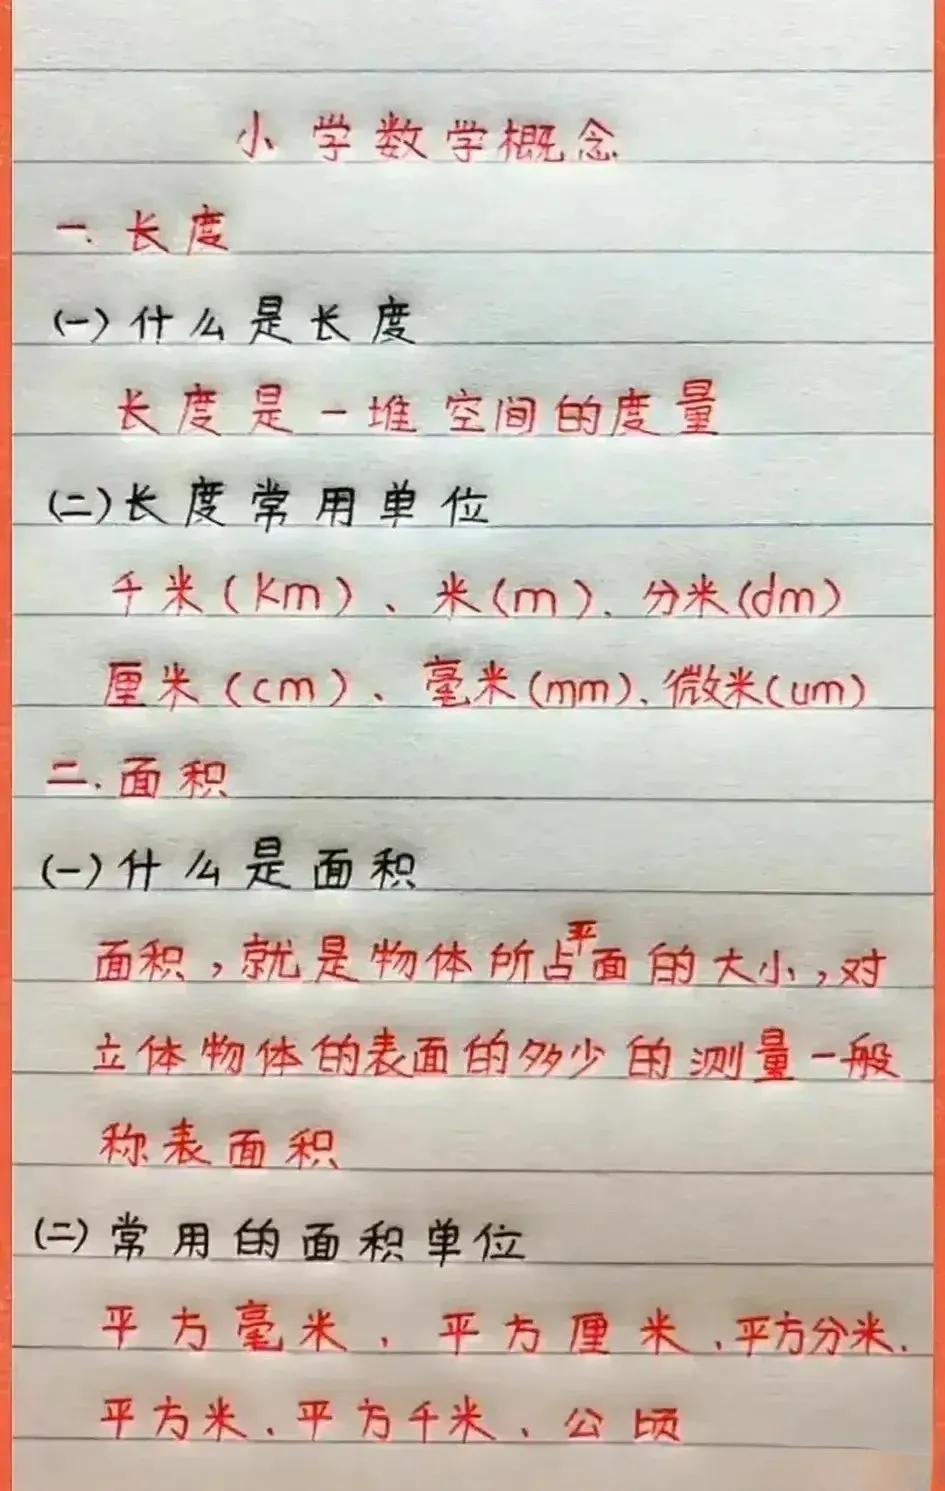 小学数学概念
一.长度
(一)什么是长度
长度是一堆空间的度量
(二)长度常用单位
千米(km)、米(m)、分米(dm)
厘米(cm)、毫米(mm)、微米(um)
二.面积
(一)什么是面积
面积,就是物体所占平面的大小,对
立体物体的表面的多少的测量一般
称表面积
(二)常用的面积单位
平方毫米、平方厘米、平方分米、
平方米、平方千米、公顷